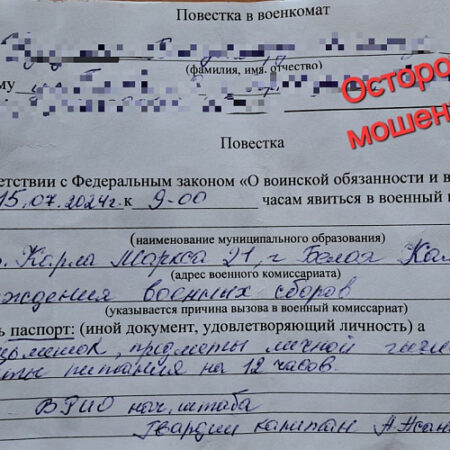 Повестка в военкомат
(фамилия, имя, отчество)
ому
Осторо
мошен
Повестка
етствии с Федеральным законом «О воинской обязанности и в
15.07.2024г. к 9-00 часам явиться в военный к
(наименование муниципального образования)
Карла Маркса 21, г Белая Кал
(адрес военного комиссариата)
ждения военных сборов
(указывается причина вызова в военный комиссариат)
ь паспорт: (иной документ, удовлетворяющий личность) а
предметы личной гигие
питания на 12 часов.
ВРИО нач. штаба
Гвардии капитан